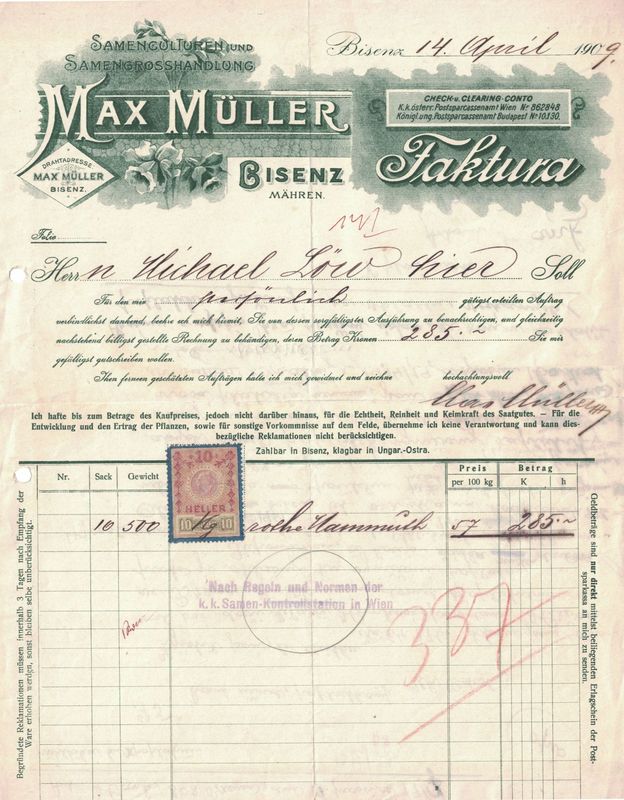 SAMENCULTUREN UND
SAMENGROSSHANDLUNG
MAX MÜLLER
DRAHTADRESSE
MAX MÜLLER
BISENZ.
BISENZ
MÄHREN.
Bisenz 14. April 1909.
CHECK- u. CLEARING-CONTO
K.k. österr. Postsparcassenamt Wien No 862848
Königl. ung. Postsparcassenamt Budapest No 10.130.
Faktura
Folio
Herrn Michael Löw hier Soll
Für den mir persönlich gütigst erteilten Auftrag
verbindlichst dankend, beehre ich mich hiemit, Sie von dessen sorgfältigster Ausführung zu benachrichtigen, und gleichzeitig
nachstehend billigst gestellte Rechnung zu behändigen, deren Betrag Kronen 285.~ Sie mir
gefälligst gutschreiben wollen.
Ihren ferneren geschätzten Aufträgen halte ich mich gewidmet und zeichne hochachtungsvoll
Max Müller
Ich hafte bis zum Betrage des Kaufpreises, jedoch nicht darüber hinaus, für die Echtheit, Reinheit und Keimkraft des Saatgutes. – Für die
Entwicklung und den Ertrag der Pflanzen, sowie für sonstige Vorkommnisse auf dem Felde, übernehme ich keine Verantwortung und kann dies-
bezügliche Reklamationen nicht berücksichtigen.
Zahlbar in Bisenz, klagbar in Ungar.-Ostra.
Nr. Sack Gewicht Preis per 100 kg Betrag K h
10
HELLER
10 10
10 500 Kg rothe Mammuth 57 285.~
Nach Regeln und Normen der
k. k. Samen-Kontrollstation in Wien
337
Begründete Reklamationen müssen innerhalb 3 Tagen nach Empfang der
Ware erhoben werden, sonst bleiben selbe unberücksichtigt.
Geldbeträge sind nur direkt mittelst beiliegenden Erlagschein der Post-
sparkassa an mich zu senden.